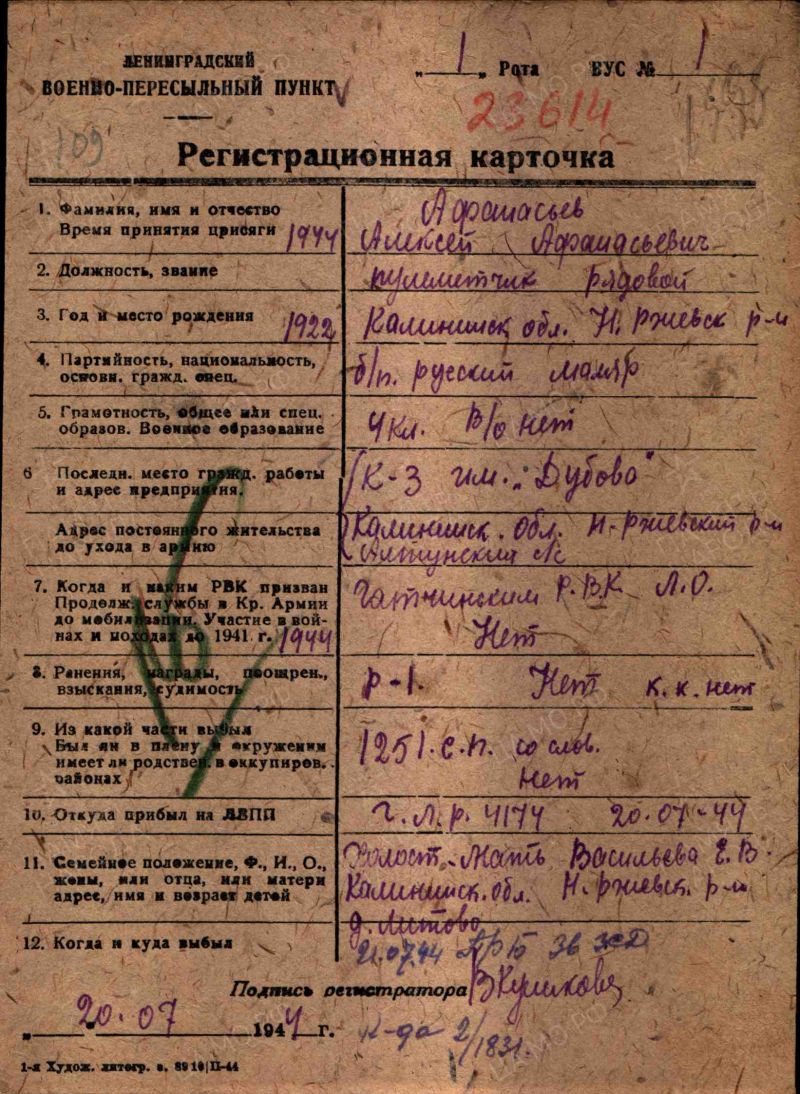 ЛЕНИНГРАДСКИЙ
ВОЕННО-ПЕРЕСЫЛЬНЫЙ ПУНКТ
„ 1 „ Рота ВУС № 1
23614
109
Регистрационная карточка
1. Фамилия, имя и отчество Афанасьев
Время принятия присяги 1944 Алексей Афанасьевич
2. Должность, звание пулеметчик рядовой
3. Год и место рождения 1922 Калининск обл. Н. Ржевск р-н
4. Партийность, национальность,
основн. гражд. спец. б/п. русский маляр
5. Грамотность, общее или спец.
образов. Военное образование 4 кл. в/о нет
6 Последн. место гражд. работы К-З им. „Дубово"
и адрес предприятия.
Адрес постоянного жительства Калининск. обл. Н-Ржевский р-н
до ухода в армию Алтунский с/с
7. Когда и каким РВК призван Гатчинским Р.В.К. Л.О.
Продолж. службы в Кр. Армии
до мобилизации. Участие в вой- Нет
нах и походах до 1941 г. 1944
8. Ранения, награды, поощрен., Р-1. Нет к.к. нет
взыскания, судимость
9. Из какой части выбыл 1251. с.п. со слов.
Был ли в плену и окружении
имеет ли родствен. в оккупиров. нет
районах
10. Откуда прибыл на ЛВПП Г.Л.Р. 4174 20.07-44
11. Семейное положение, Ф., И., О., Холост. Мать Васильева Е. В.
жены, или отца, или матери Калининск. обл. Н. Ржевск. р-н
адрес, имя и возраст детей
д. Литово
12. Когда и куда выбыл 21.07.44 36
Подпись регистратора
„ 20.07 1944 г. К-да 2/1831.
1-я Худож. литогр. з. 8910|П-44